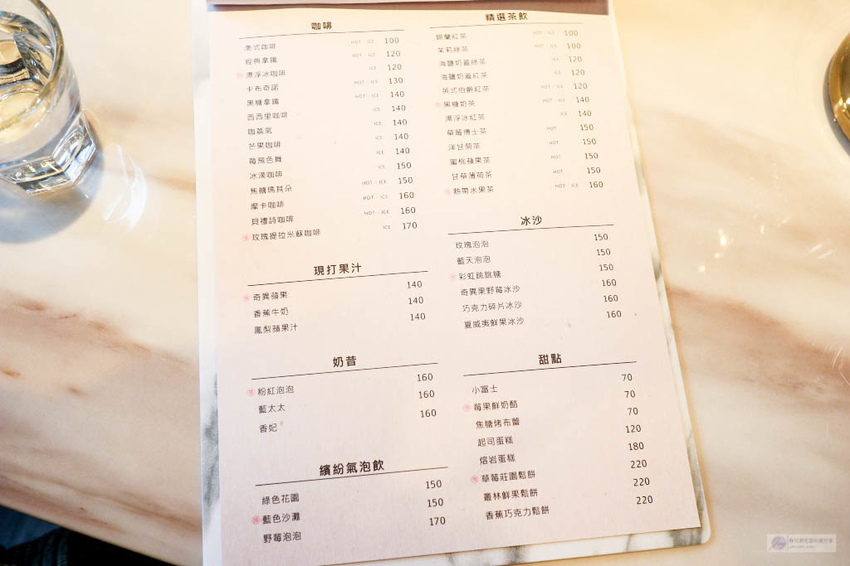 咖啡
美式咖啡 HOT · ICE 100
經典拿鐵 HOT · ICE 120
漂浮冰咖啡 ICE 120
卡布奇諾 HOT · ICE 130
黑糖拿鐵 HOT · ICE 140
西西里咖啡 ICE 140
咖荔氣 ICE 140
芒果咖啡 ICE 140
莓飛色舞 ICE 140
冰漢咖啡 ICE 150
焦糖瑪其朵 HOT · ICE 150
摩卡咖啡 HOT · ICE 160
貝禮詩咖啡 HOT · ICE 160
玫瑰提拉米蘇咖啡 ICE 170
現打果汁
奇異蘋果 140
香蕉牛奶 140
鳳梨蘋果汁 140
奶昔
粉紅泡泡 160
藍太太 160
香妃 160
繽紛氣泡飲
綠色花園 150
藍色沙灘 150
野莓泡泡 170
精選茶飲
錫蘭紅茶 HOT · ICE 100
茉莉綠茶 HOT · ICE 100
海鹽奶蓋綠茶 ICE 120
海鹽奶蓋紅茶 ICE 120
英式伯爵紅茶 HOT · ICE 120
黑糖奶茶 HOT · ICE 140
漂浮冰紅茶 ICE 140
草莓博士茶 HOT 150
洋甘菊茶 HOT 150
蜜桃蘋果茶 HOT 150
甘草薄荷茶 HOT 150
熱帶水果茶 HOT · ICE 160
冰沙
玫瑰泡泡 150
藍天泡泡 150
彩虹跳跳糖 150
奇異果野莓冰沙 160
巧克力碎片冰沙 160
夏威夷鮮果冰沙 160
甜點
小富士 70
莓果鮮奶酪 70
焦糖烤布蕾 70
起司蛋糕 120
熔岩蛋糕 180
草莓莊園鬆餅 220
叢林鮮果鬆餅 220
香蕉巧克力鬆餅 220